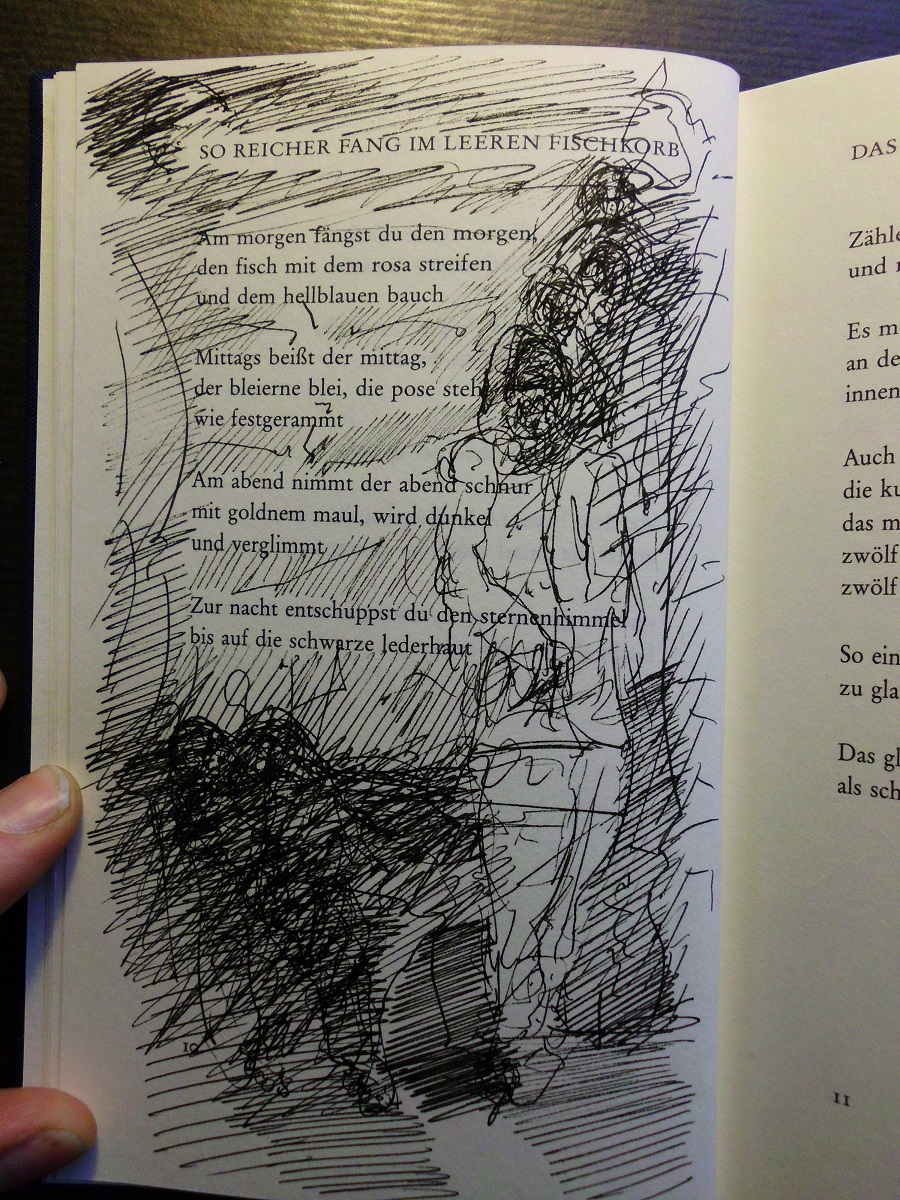 SO REICHER FANG IM LEEREN FISCHKORB
Am morgen fängst du den morgen,
den fisch mit dem rosa streifen
und dem hellblauen bauch
Mittags beißt der mittag,
der bleierne blei, die pose steht
wie festgerammt
Am abend nimmt der abend schnur
mit goldnem maul, wird dunkel
und verglimmt
Zur nacht entschuppst du den sternenhimmel
bis auf die schwarze lederhaut
10
DAS
Zähle
und
Es
an
innen
Auch
die
das
zwölf
zwölf
So ein
zu
Das
als
11